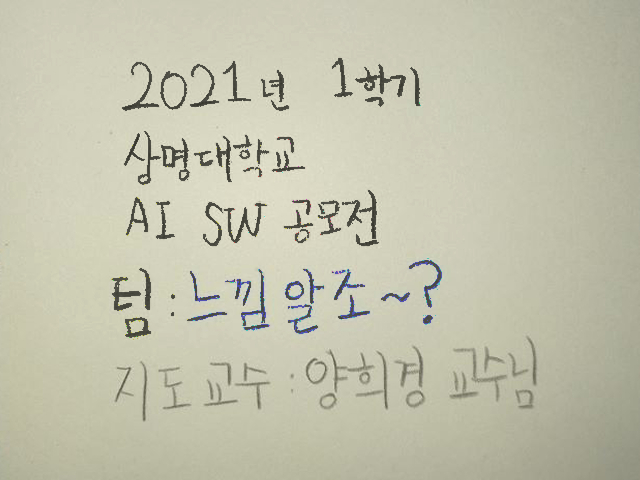 2021년 1학기
상명대학교
AI SW 공모전
팀: 느낌 알 조~?
지도교수: 양희경 교수님